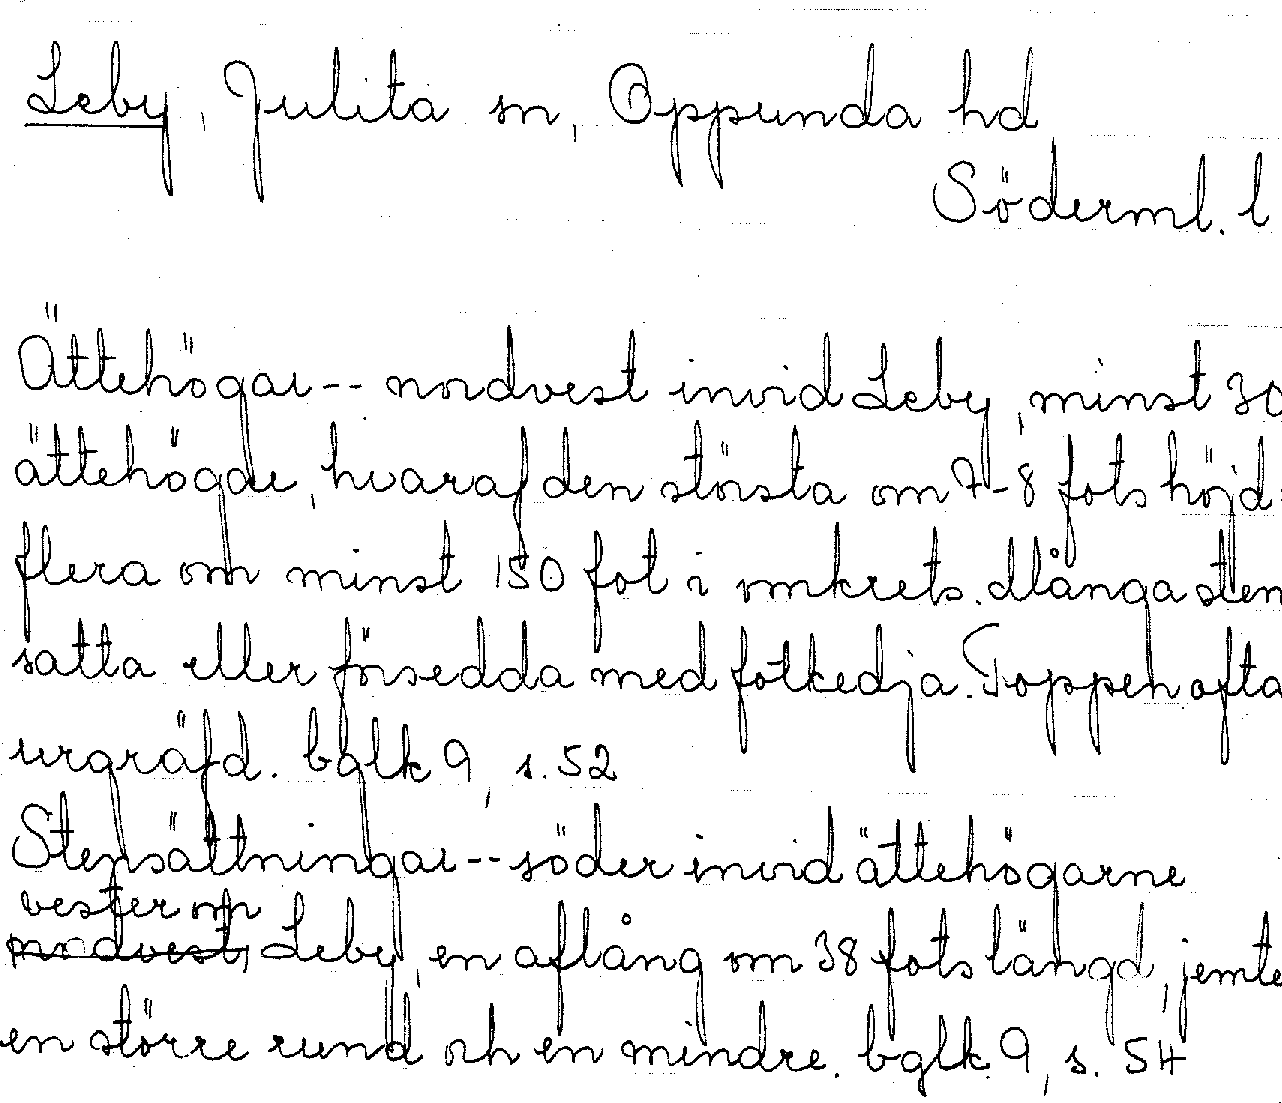 Leby, Julita sn, Oppunda hd
Söderml. l
Ättehögar -- nordvest invid Leby, minst 30
ättehögar, hvaraf den största om 7-8 fots höjd
flera om minst 150 fot i omkrets. dlånga sten
satta eller försedda med fotkedja. Toppen ofta
urgräfd. bglk 9, s. 52
Stensättningar -- söder invid ättehögarne
vester om
nordvest, Leby, en aflång om 38 fots längd, jemte
en större rund och en mindre. bglk 9, s. 54